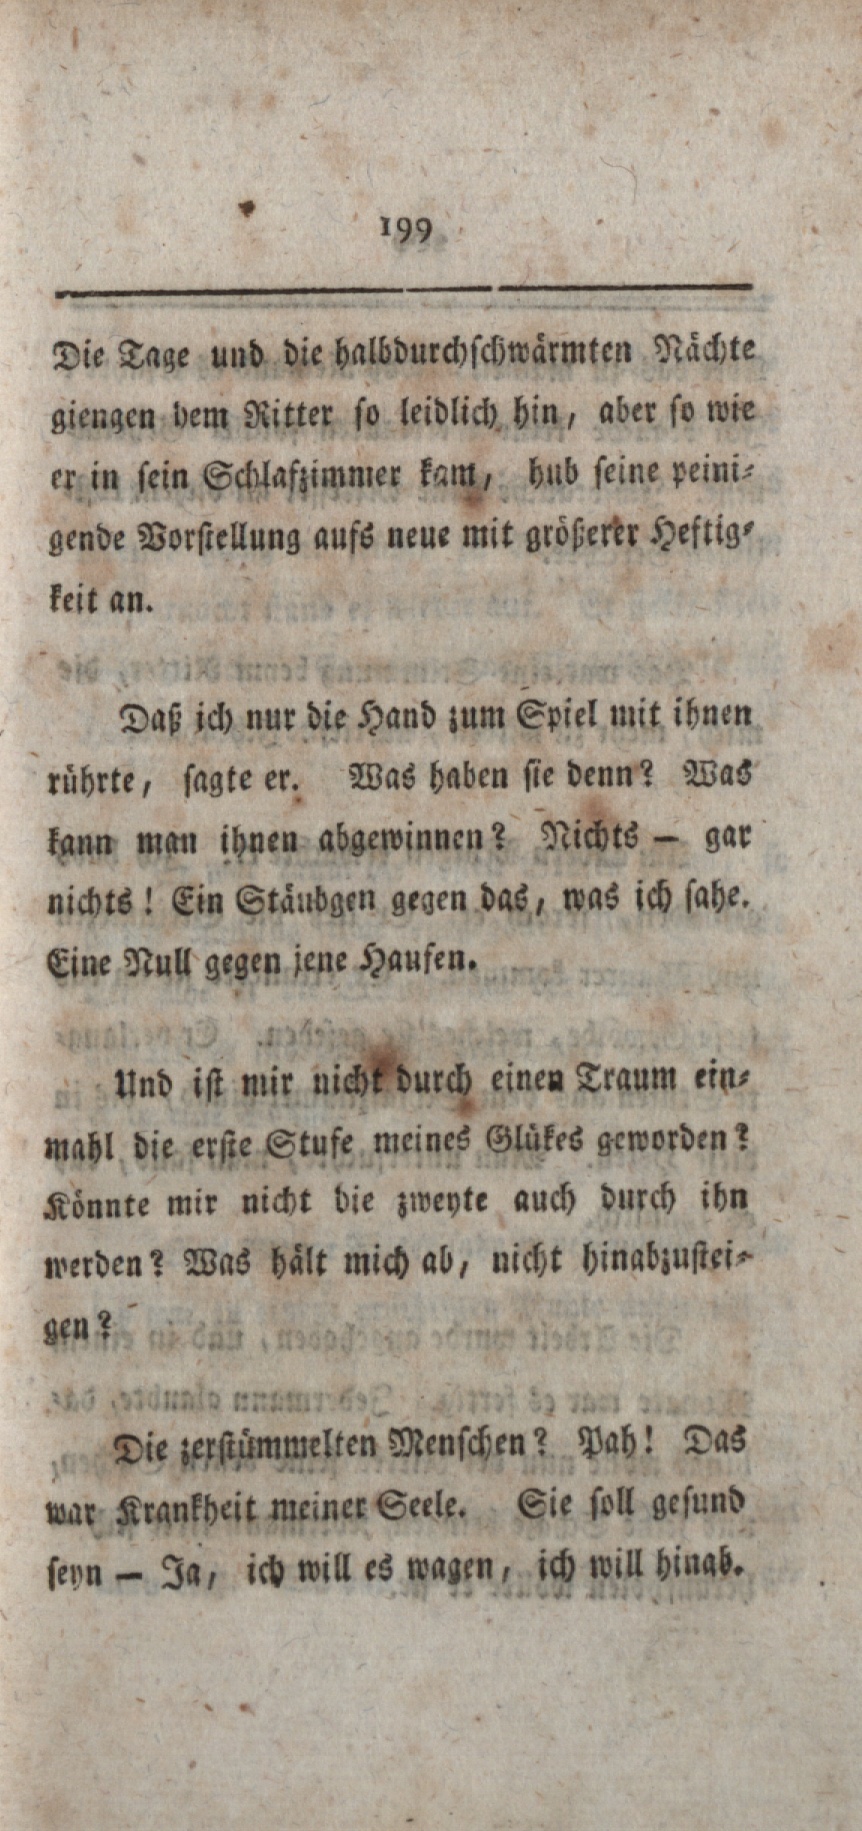 199
Die Tage und die halbdurchschwärmten Nächte
giengen dem Ritter so leidlich hin, aber so wie
er in sein Schlafzimmer kam, hub seine peini-
gende Vorstellung aufs neue mit größerer Heftig-
keit an.
Daß ich nur die Hand zum Spiel mit ihnen
rührte, sagte er. Was haben sie denn? Was
kann man ihnen abgewinnen? Nichts — gar
nichts! Ein Stäubgen gegen das, was ich sahe.
Eine Null gegen jene Haufen.
Und ist mir nicht durch einen Traum ein-
mahl die erste Stufe meines Glükes geworden?
Könnte mir nicht die zweyte auch durch ihn
werden? Was hält mich ab, nicht hinabzustei-
gen?
Die zerstümmelten Menschen? Pah! Das
war Krankheit meiner Seele. Sie soll gesund
seyn — Ja, ich will es wagen, ich will hinab.